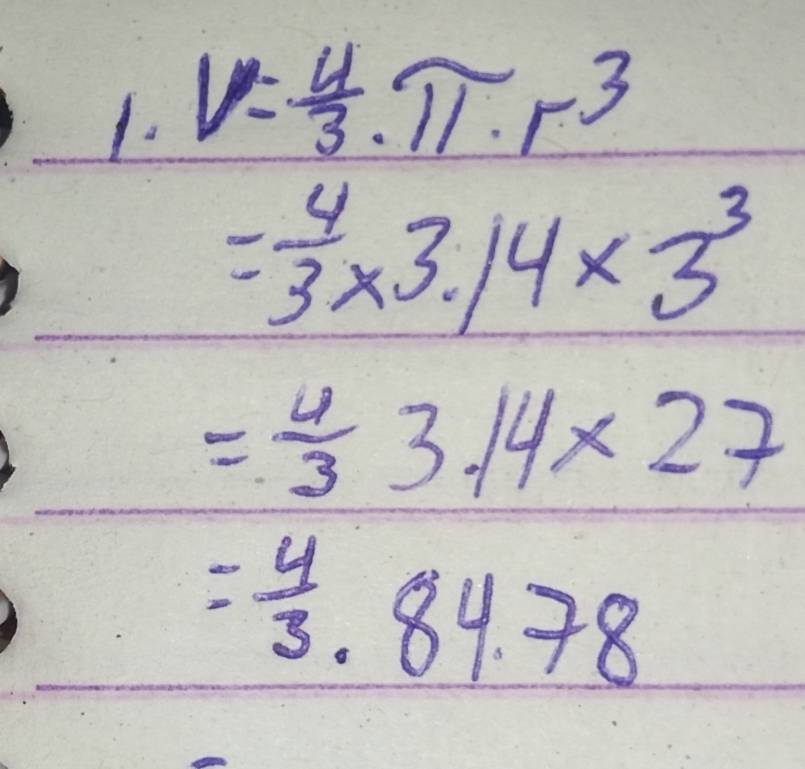 1. V = 4/3 . π . r³
= 4/3 × 3.14 × 3³
= 4/3 3.14 × 27
= 4/3 . 84.78